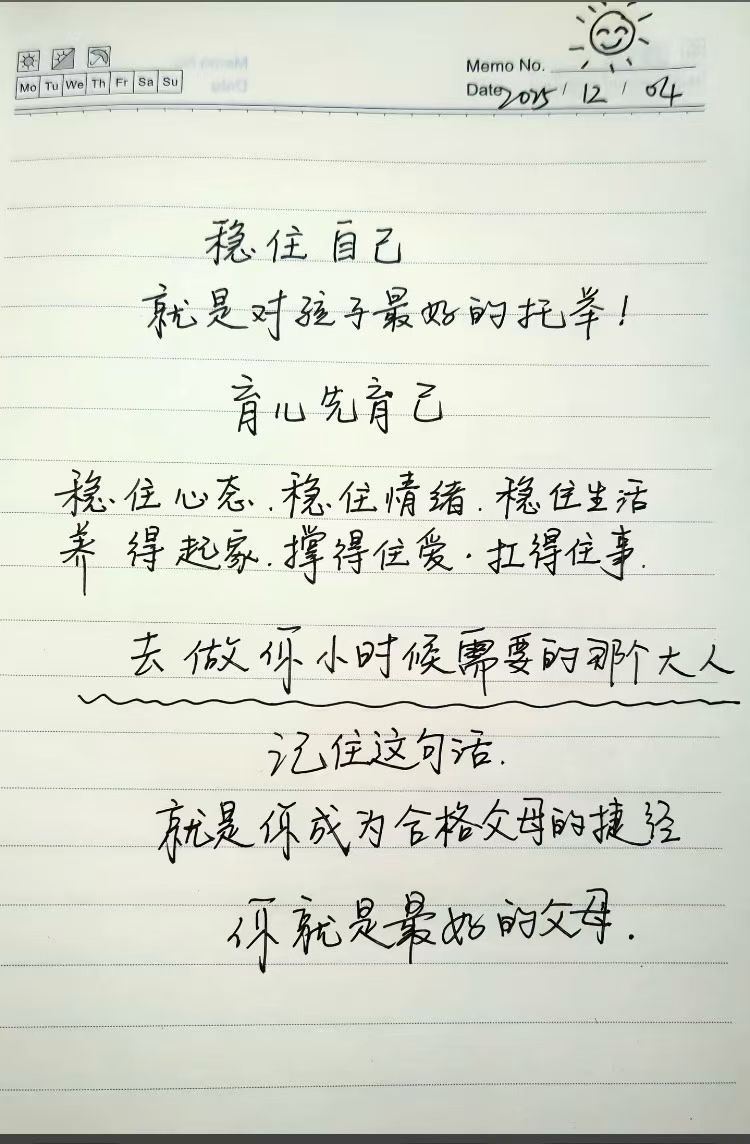 Mo Tu We Th Fr Sa Su
Memo No.
Date 2025 / 12 / 04
稳住自己
就是对孩子最好的托举！
育儿先育己
稳住心态.稳住情绪.稳住生活
养得起家.撑得住爱.扛得住事.
去做你小时候需要的那个大人
记住这句话.
就是你成为合格父母的捷径
你就是最好的父母.